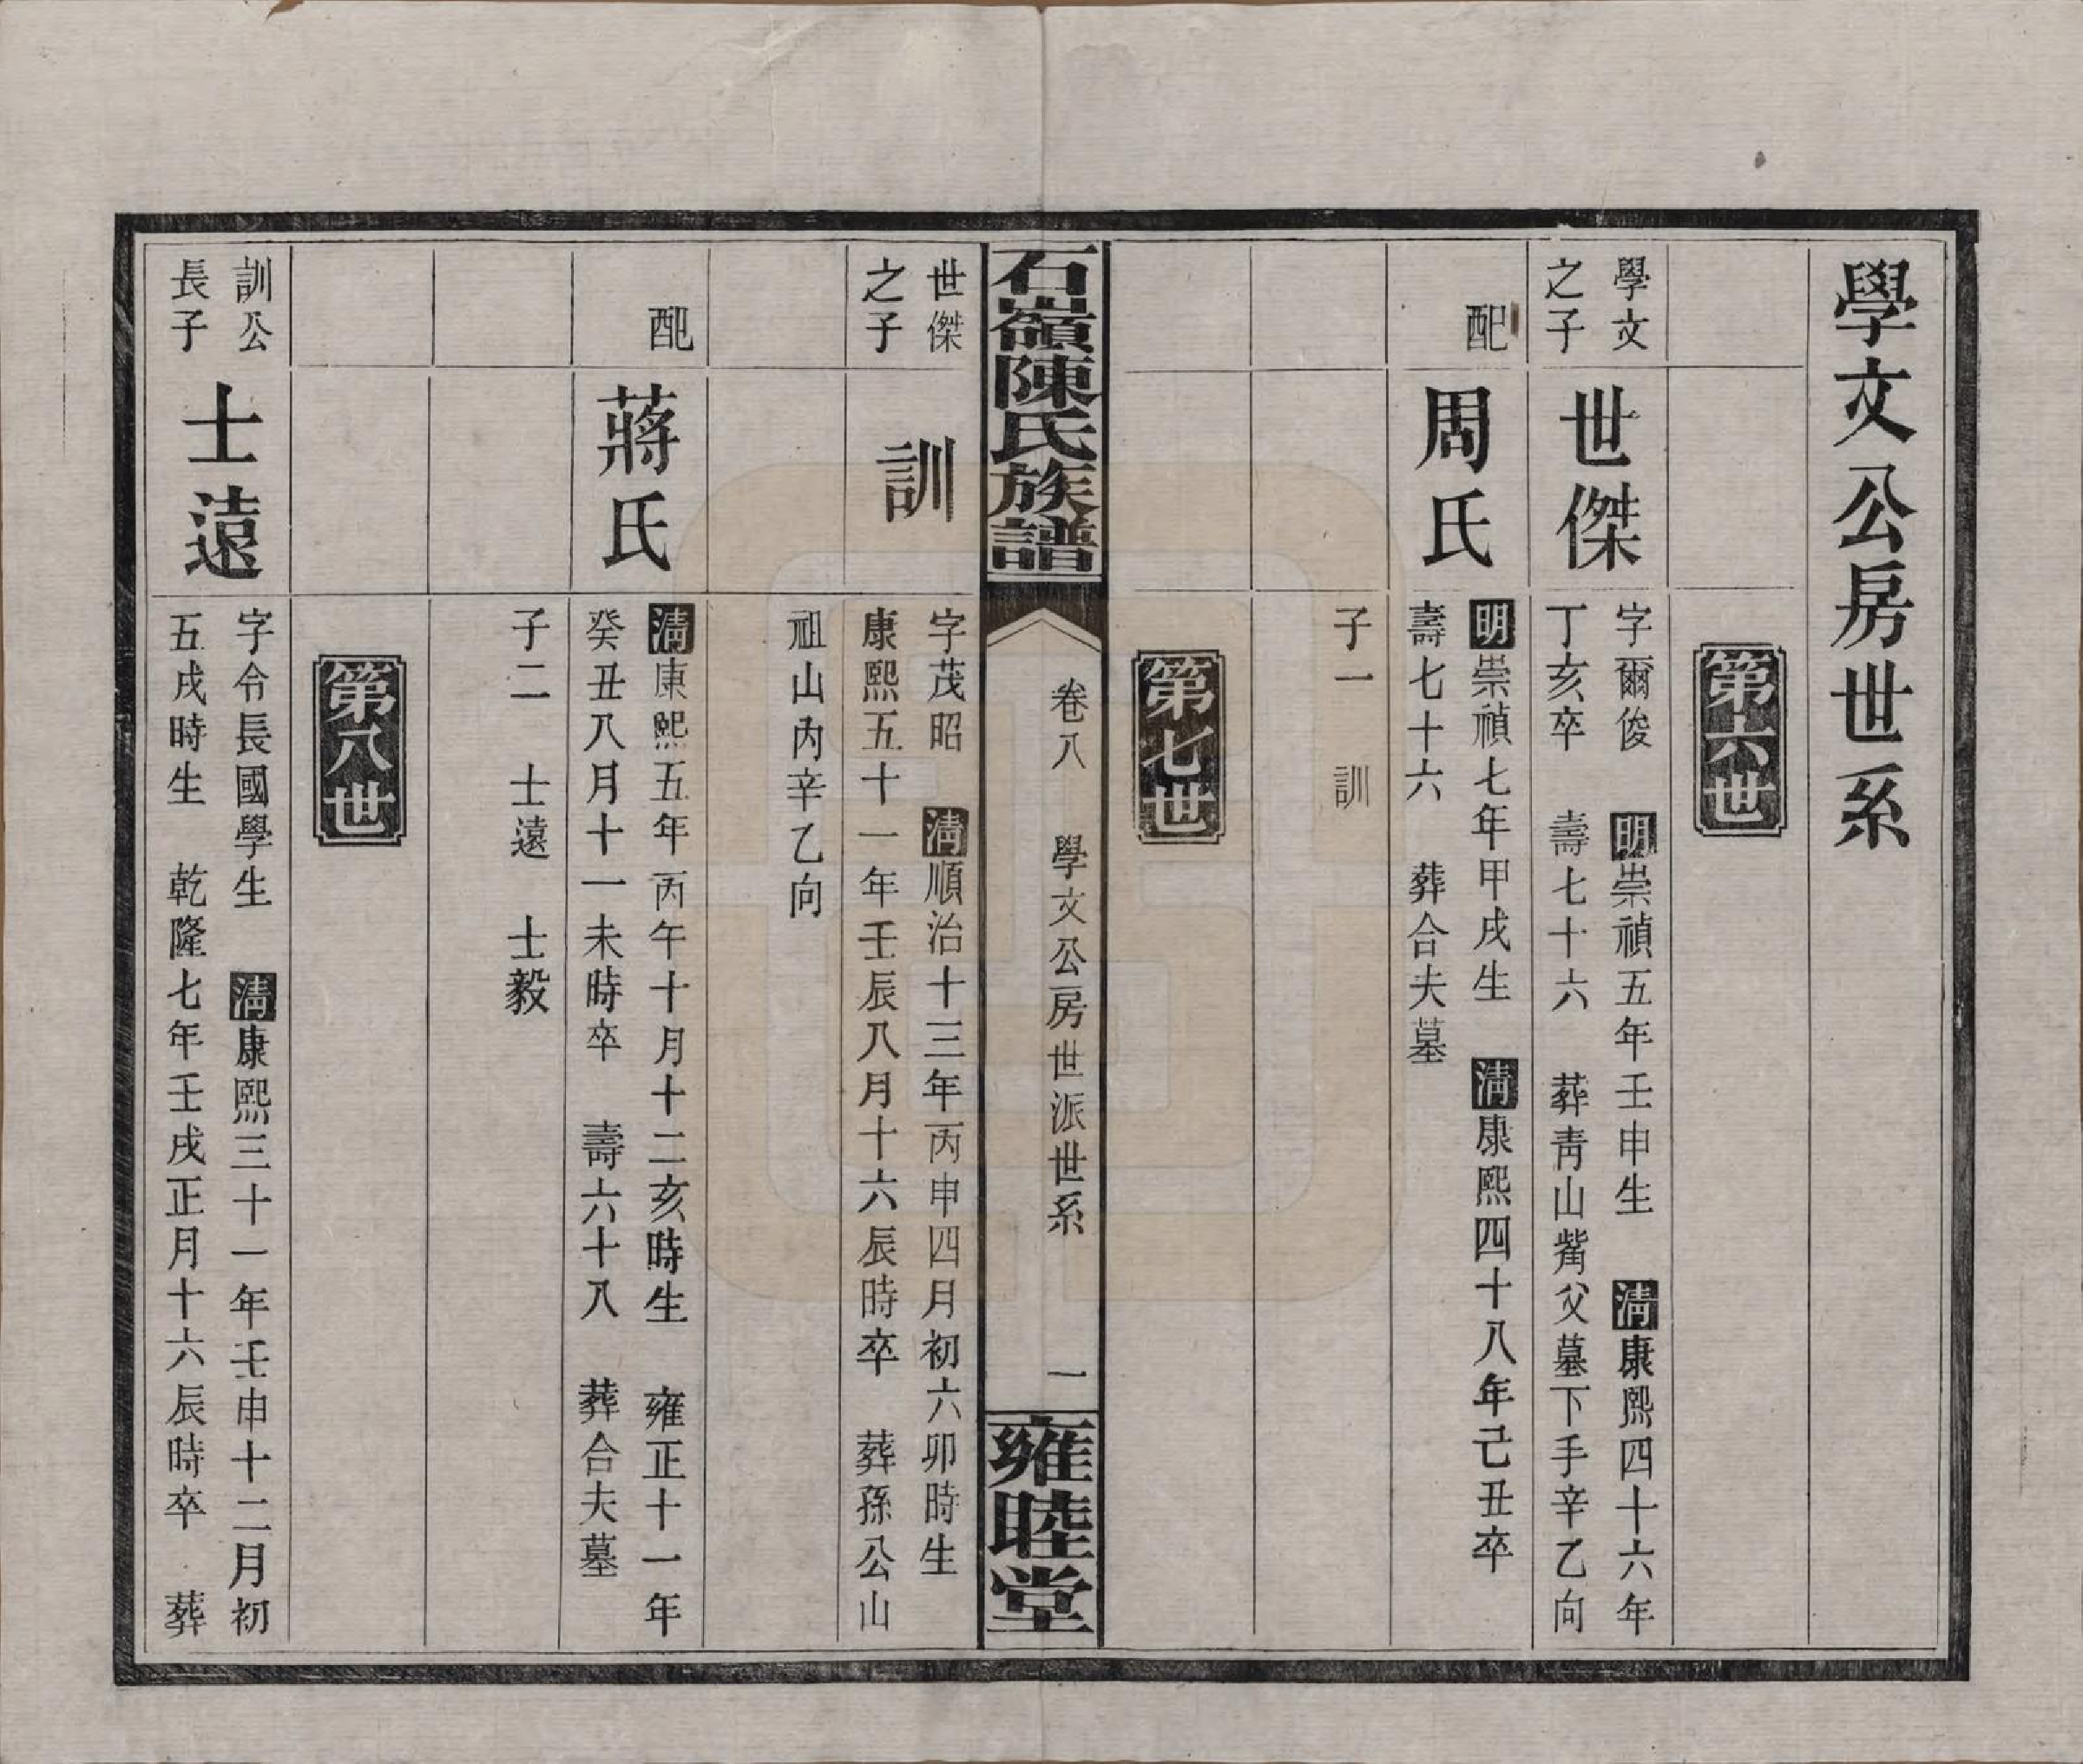 學文公房世系
第六世
學文
之子
世傑
字爾俊　明崇禎五年壬申生　清康熙四十六年
丁亥卒　壽七十六　葬靑山觜父墓下手辛乙向
配
周氏
明崇禎七年甲戌生　清康熙四十八年己丑卒
壽七十六　葬合夫墓
子一　訓
第七世
石嶺陳氏族譜
卷八　學文公房世派世系
一
雍睦堂
世傑
之子
訓
字茂昭　清順治十三年丙申四月初六卯時生
康熙五十一年壬辰八月十六辰時卒　葬孫公山
祖山內辛乙向
配
蔣氏
清康熙五年丙午十月十二亥時生　雍正十一年
癸丑八月十一未時卒　壽六十八　葬合夫墓
子二　士遠　士毅
第八世
訓公
長子
士遠
字令長國學生　清康熙三十一年壬申十二月初
五戌時生　乾隆七年壬戌正月十六辰時卒　葬